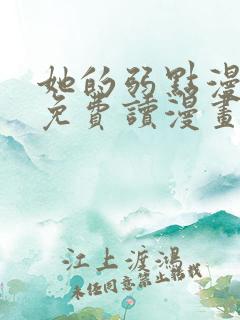 她的弱點漫
免費讀漫畫
江上渡鴻
未經同意禁止轉載